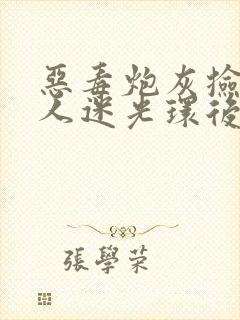 惡毒炮灰撿
人迷光環後
張學荣